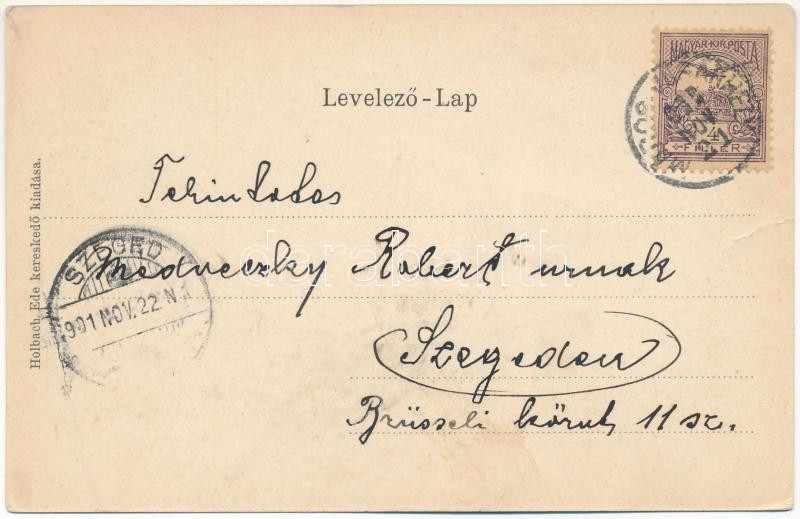 Levelező-Lap
MAGYAR KIR. POSTA
4
FILLÉR
Tekintetes
Medveczky Robert urnak
Szegeden
Brüsseli körut, 11 sz.
SZEGED
901 NOV. 22 N 1
Holbach Ede kereskedő kiadása.
darabanth